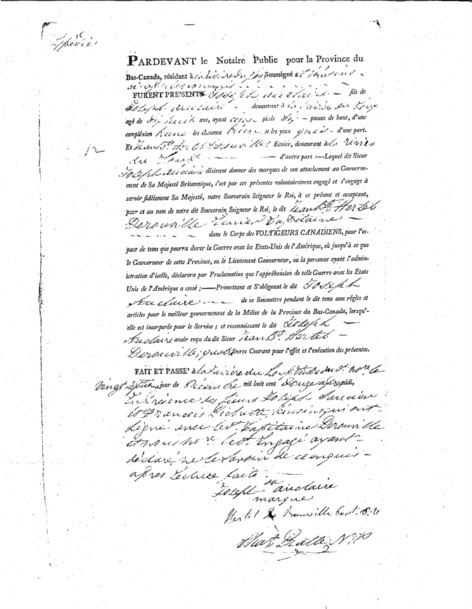 PARDEVANT le Notaire Public pour la Province du
Bas-Canada, résidant à la rivière du Soussigné et témoins
FURENT PRESENTS Joseph auclaire fils de
Joseph auclaire demeurant à la rivière du
agé de ans, ayant cinq pieds pouces de haut, d'une
complexion les cheveux et les yeux gris d'une part.
Et Jean Bte Hertel Derouville Ecuier, demeurant à la rivière
du d'autre part:—Lequel dit Sieur
Joseph Auclaire désirant donner des marques de son attachement au Gouverne-
ment de Sa Majesté Britannique, s'est par ces présentes volontairement engagé et s'engage à
servir fidèlement Sa Majesté, notre Souverain Seigneur le Roi, à ce présent et acceptant,
pour et au nom de notre dit Souverain Seigneur le Roi, le dit Jean Bte Hertel
Derouville Ecuier Capitaine
dans le Corps des VOLTIGEURS CANADIENS, pour l'es-
pace de tems que pourra durer la Guerre avec les Etats-Unis de l'Amérique, où jusqu'à ce que
le Gouverneur de cette Province, ou le Lieutenant Gouverneur, ou la personne ayant l'admi-
nistration d'icelle, déclarera par Proclamation que l'appréhension de telle Guerre avec les Etats
Unis de l'Amérique a cessé;——Promettant et S'obligeant le dit Joseph
Auclaire de se Soumettre pendant le dit tems aux règles et
articles pour le meilleur gouvernement de la Milice de la Province du Bas-Canada, lorsqu'-
elle est incorporée pour le Service; et reconnaissant le dit Joseph
Auclaire avoir reçu du dit Sieur Jean Bte Hertel
Derouville, Courant pour l'effet et l'exécution des présentes.
FAIT ET PASSE' à la rivière du
vingt jour de Décembre mil huit cent Douze après
En Présence des Sieurs Joseph
et François qui ont
signé avec le dit Capitaine Derouville
et nous Nore le dit Engagé ayant
déclaré ne le savoir de ce enquis
après Lecture faite
sa
Joseph auclaire
marque
Hertel De Rouville Capt.
N.P.